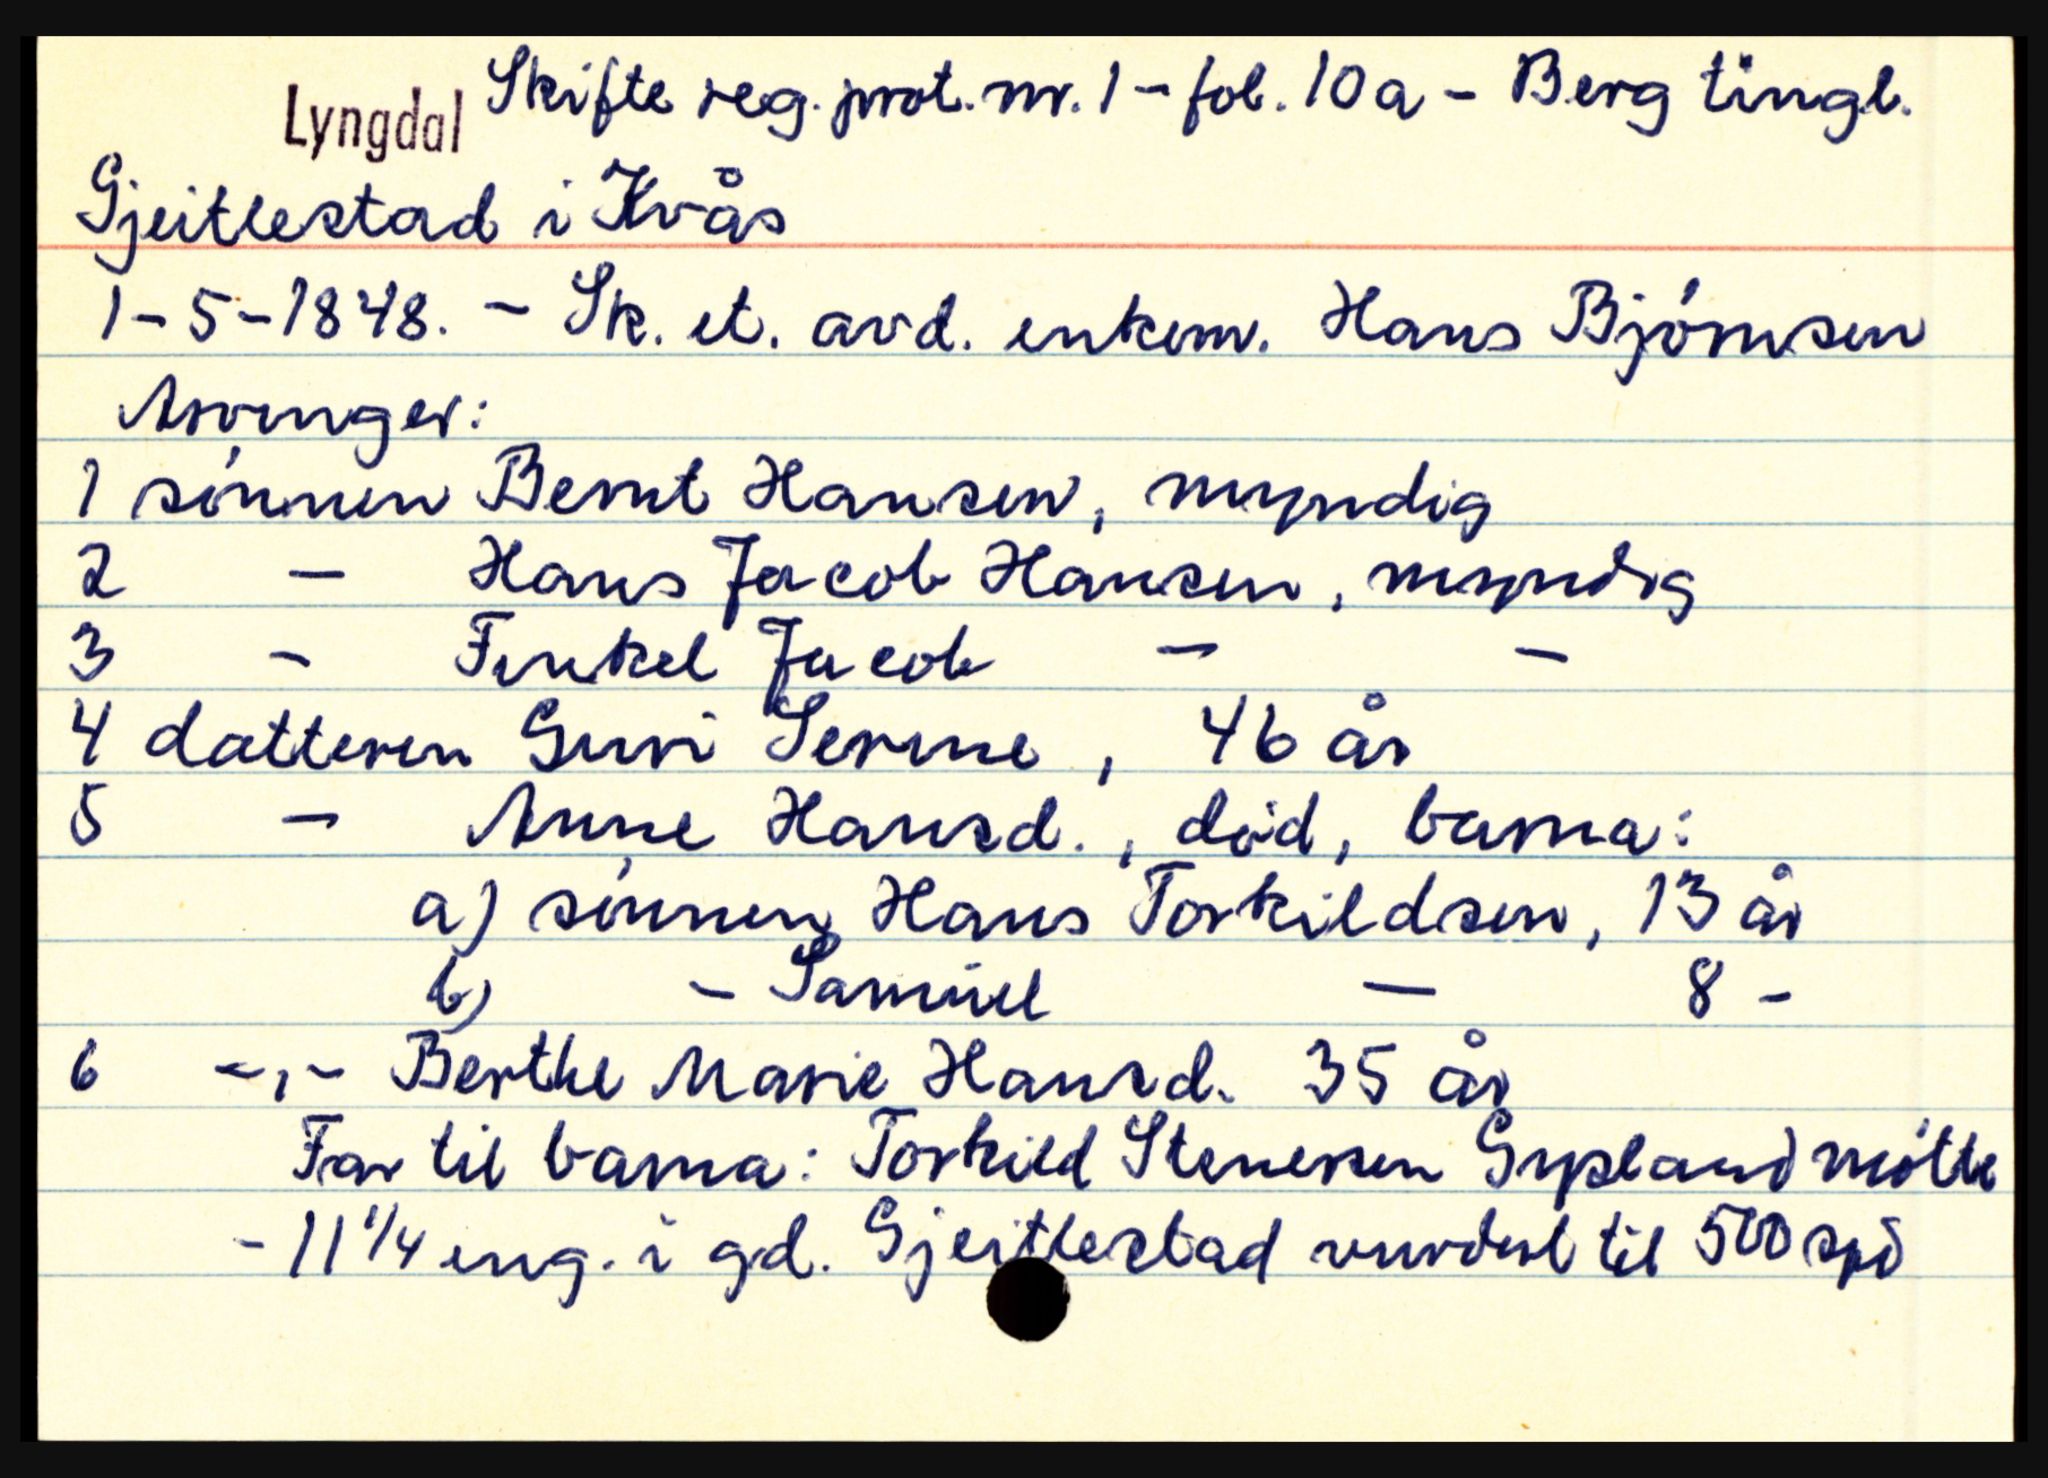 Lyngdal Skifte reg. prot. nr. 1 - fol. 10a - Berg tingl.
Gjeitlestad i Kvås
1-5-1848. - Sk. et. avd. enkem. Hans Bjórnsen
Arvinger:
1 sónnen Bernt Hansen, myndig
2 - Hans Jacob Hansen, myndig
3 - Finkel Jacob - -
4 datteren Guri Serine, 46 år
5 - Anne Hansd., dód, barna:
a) sónnen Hans Torkildsen, 13 år
b) - Samuel - 8 -
6 -,- Berthe Marie Hansd. 35 år
Far til barna: Torkild Stenersen Gysland mótte
- 11 1/4 eng. i gd. Gjeitlestad vurdert til 500 spd